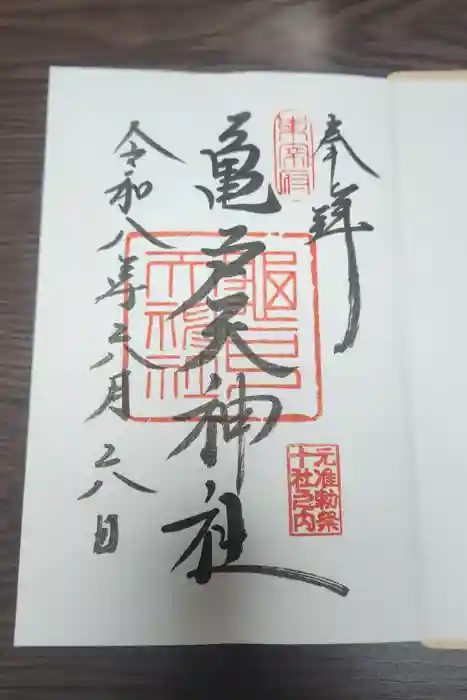 奉拝
東宰府
亀戸天神社
龜戸
天神社
元准勅祭
十社之内
令和八年六月六日